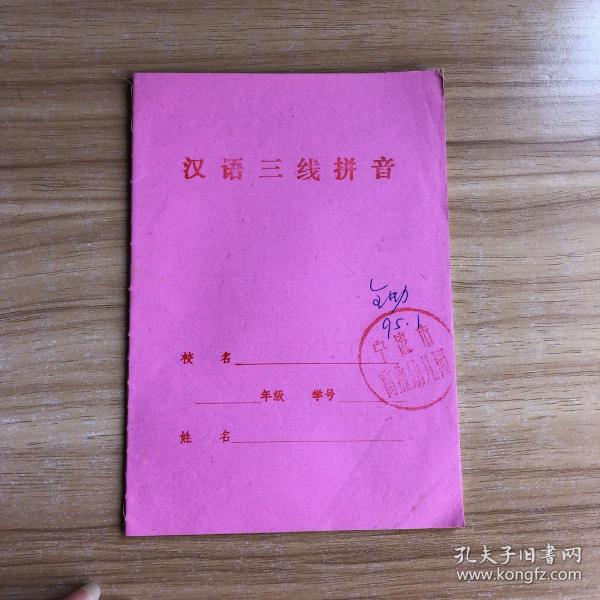 汉语三线拼音
95.1
宁波市
校 名
年级 学号
姓 名
孔夫子旧书网
www.kongfz.com